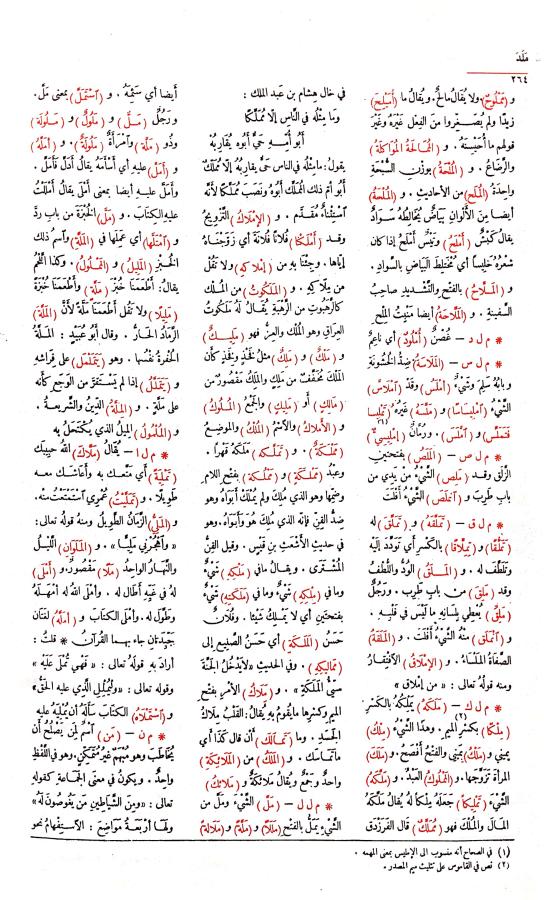 مَلَدَ
٢٦٤
و (مَمْلُوحٌ) ولا يُقالُ مالحٌ. ويُقالُ ما (أُمَيْلِحَ)
زيدًا ولم يُصَغِّروا مِنَ الفِعْلِ غَيْرَهُ وغَيْرَ
قولهم ما أُحَيْسِنَهُ . و (المُمَالَحَةُ) المُؤَاكَلَةُ
والرَّضَاعُ . و (المُلْحَةُ) بوزن السُّبْحَةِ
واحِدَةُ (المُلَحِ) من الأحاديثِ . و (المُلْحَةُ)
أيضا مِنَ الأَلْوانِ بَيَاضٌ يُخالِطُهُ سَوَادٌ
يقالُ كَبْشٌ (أَمْلَحُ) وتَيْسٌ أَمْلَحُ إذا كان
شَعْرُهُ خَلِيسا أي مُخْتَلِطَ البَيَاضِ بالسَّوادِ .
و (المَلَّاحُ) بالفتح والتشديد صاحبُ
السفينة . و (المَلَّاحَةُ) أيضا مَنْبِتُ المِلْحِ
* م ل د – غُصْنٌ (أُمْلُودٌ) أي ناعِمٌ
* م ل س – (المَلَاسَةُ) ضِدُّ الخُشُونَةِ
وبابُهُ سَلِمَ وشَيْءٌ (أَمْلَسُ) وقد (آمْلَاسَّ)
الشَّيْءُ (آمْلِيسَاسًا) و (مَلَّسَهُ) غَيْرُهُ (تَمْلِيسا
فَتَمَلَّسَ) و (آمَّلَسَ) . ورُمَّانٌ (إِمْلِيسِيٌّ)(١)
* م ل ص – (المَلَصُ) بفتحتين
الزَّلَقُ وقد (مَلِصَ) الشَّيْءُ مِنْ يَدِي مِنْ
باب طَرِبَ و (آنْمَلَصَ) الشَّيْءُ أَفْلَتَ
* م ل ق – (تَمَلَّقَهُ) و (تَمَلَّقَ) له
(تَمَلُّقًا) و (تِمِلَّاقًا) بالكَسْرِ أي تَوَدَّدَ إليه
وتَلَطَّفَ له . و (المَلَقُ) الوُدُّ واللُّطْفُ
وقد (مَلِقَ) من باب طرب . ورَجُلٌ
(مَلِقٌ) يُعْطِي بلِسَانِهِ ما لَيْسَ في قَلْبِهِ .
و (آنْمَلَقَ) مِنْهُ الشَّيْءُ أَفْلَتَ . و (المَلَقَةُ)
الصَّفَاةُ المَلْسَاءُ . و (الإِمْلَاقُ) الآفْتِقَارُ
ومنه قولُهُ تعالى : « من إملاق »
* م ل ك – (مَلَكَهُ) يَمْلِكُهُ بالكَسْرِ
(مِلْكًا)(٢) بكَسْرِ الميم . وهذا الشَّيْءُ (مِلْكُ)
يميني و (مَلْكُ) يميني والفتحُ أَفْصَحُ . و (مَلَكَ)
المرأةَ تزوَّجَها . و (المملوكُ) العَبْدُ . و (مَلَّكَهُ)
الشَّيْءَ (تَمْلِيكًا) جَعَلَهُ مِلْكا لهُ يقالُ مَلَّكَهُ
المالَ والمُلْكَ فهو (مُمَلَّكٌ) قال الفرزدق
في خال هِشام بن عَبدِ الملك :
وَما مِثْلُهُ في النَّاسِ إلَّا مُمَلَّكًا
أَبُو أُمِّهِ حَيٌّ أَبُوه يُقارِبُهْ
يقول: ما مِثلُه في الناس حَيٌّ يُقارِبُهُ إلَّا مُمَلَّكٌ
أَبُو أُمِّ ذلك المُمَلَّكِ أَبُوهُ ونَصَبَ مُمَلَّكا لأنَّه
آسْتِثْنَاءٌ مُقَدَّم . و (الإِمْلَاكُ) التَّزْوِيجُ
وقد (أَمْلَكْنَا) فُلانًا فُلانَةَ أي زَوَّجْنَاهُ
إيَّاها . وجِئْنَا به مِنْ (إمْلاكِهِ) ولا تَقُل
مِن مِلَاكِهِ . و (المَلَكُوتُ) من المُلْك
كالرَّهَبُوتِ من الرَّهْبَةِ يُقَالُ لهُ مَلَكُوتُ
العِراقِ وهو المُلْكُ والعِزُّ فهو (مَلِيكٌ)
و (مَلْكٌ) و (مَلِكٌ) مثلُ فَخْذٍ وفَخِذٍ كأنّ
المَلْكَ مُخَفَّفٌ من مَلِكٍ والمَلِكَ مَقْصُورٌ من
(مَالِكٍ) أو (مَلِيكٍ) والجمْعُ (المُلُوكُ)
و (الأَمْلاكُ) والآسْمُ (المُلْكُ) والموضِعُ
(مَمْلَكَةٌ) . و (تَمَلَّكَهُ) مَلَكَهُ قَهْرًا .
وعَبْدُ (مَمْلَكَةٍ) و (مَمْلُكَةٍ) بفتح اللام
وضمِّها وهو الذي مُلِكَ ولم يُمْلَكْ أَبَوَاهُ وهو
ضِدُّ القِنِّ فإنه الذي مُلِكَ هُوَ وأَبَوَاهُ. وهو
في حديثِ الأَشْعَثِ بن قَيْس . وقيل القِنُّ
المُشْتَرَى . ويقالُ ما في (مَلْكِهِ) شَيْءٌ
وما في (مِلْكِهِ) شَيْءٌ وما في (مَلَكَتِهِ) شَيْءٌ
بفتحتين أي لا يَمْلِكُ شَيْئًا . وفُلَانٌ
حَسَنُ (المَلَكَةِ) أي حَسَنُ الصَّنِيع إلى
(مَمَالِيكِهِ) . وفي الحديث «لا يَدْخُلُ الجنةَ
سَيِّئُ المَلَكَةِ» . و (مَلَاكُ) الأَمْرِ بفتح
الميم وكسرها ما يقومُ به يُقالُ: القَلْبُ مِلاكُ
الجَسَدِ . وما (تَمَالَكَ) أن قال كَذَا أي
ماتَمَاسَك . و (المَلَكُ) من (المَلَائِكَةِ)
واحِدٌ وجَمْعٌ ويُقَالُ مَلَائِكَةٌ و (مَلَائِكُ)
* م ل ل – (مَلَّ) الشَّيْءَ ومَلَّ من
الشَّيْءِ يَمَلُّ بالفتح (مَلَلًا) و (مَلَّةً) و (مَلَالَةً)
أيضا أي سَئِمَهُ . و (آسْتَمَلَّ) بمعنى مَلَّ .
ورَجُلٌ (مَلٌّ) و (مَلُولٌ) و (مَلُولَةٌ)
وذُو (مَلَّةٍ) وآمْرَأَةٌ (مَلُولَةٌ) . و (أَمَلَّهُ)
و (أَمَلَّ) عليه أي أَسْأَمَهُ يقال أَدَلَّ فأَمَلَّ .
وأَمَلَّ عليه أيضا بمعنى أَمْلَى يقالُ أَمْلَلْتُ
عليه الكِتَابَ . و (مَلَّ) الخُبْزَةَ من باب ردَّ
و (آمْتَلَّها) أي عَمِلَها في (المَلَّةِ) وآسمُ ذلك
الخُبْز (المَلِيلُ) و (المَمْلُولُ) . وكذا اللحْمُ
يقالُ: أَطْعَمَنَا خُبْزَ (مَلَّةٍ) وأَطْعَمَنَا خُبْزَةً
(مَلِيلًا) ولا تَقُل أَطْعَمَنَا مَلَّةً لأنَّ (المَلَّةَ)
الرَّمَادُ الحارُّ . وقال أبو عُبَيد : المَلَّةُ
الحُفْرةُ نَفْسُها . وهو (يَتَمَلْمَلُ) على فِراشِهِ
و (يَتَمَلَّلُ) إذا لم يَسْتَقِرَّ من الوَجَع كأنه
على مَلَّةٍ . و (المِلَّةُ) الدِّينُ والشَّرِيعةُ .
و (المُلْمُولُ) المِيلُ الذي يُكتَحَلُ به
* م ل ا – يقال (مَلَّاكَ) اللهُ حَبِيبَك
(تَمْلِيَةً) أي مَتَّعَك به وأَعَاشَك معه
طَوِيلًا . و (تَمَلَّيْتُ) عُمْرِي آسْتَمْتَعْتُ منه.
و (المَلِيُّ) الزَّمَانُ الطَّوِيلُ ومنه قولُهُ تعالى:
« وآهْجُرْنِي مَلِيًّا » . و (المَلَوانِ) اللَّيْلُ
والنَّهارُ الواحِدُ (مَلًا) مَقْصُورٌ. و (أَمْلَى)
لهُ في غَيِّهِ أَطَالَ له . وأَمْلَى اللهُ له أَمْهَلَهُ
وطَوَّلَ له. وأَمْلَى الكتابَ و (أَمَلَّهُ) لُغتان
جَيِّدَتانِ جاء بهما القُرآنُ * قلتُ :
أراد به قَولَهُ تعالى : « فهي تُمْلَى عَلَيْهِ »
وقولَه تعالى : «ولْيُمْلِلِ الذي عليه الحقُّ»
و (آسْتَمْلَاهُ) الكتابَ سَأَلَهُ أن يُمْلِيَهُ عليهِ
* م ن – (مَنْ) آسْمٌ لِمَنْ يَصْلُحُ أن
يُخَاطَبَ وهو مُبْهَمٌ غيرُ مُتَمَكِّنٍ. وهو في اللَّفظِ
واحِدٌ . ويكونُ في معنَى الجماعةِ كقوله
تعالى: « ومِنَ الشَّياطِينِ مَنْ يَغُوصُونَ لَهُ »
ولها أَرْبَعَةُ مَوَاضِعَ : الآستِفْهامُ نحو
(١) في الصحاح أنه منسوب الى الإمليس بمعنى المهمه .
(٢) نص في القاموس على تثليث ميم المصدر .